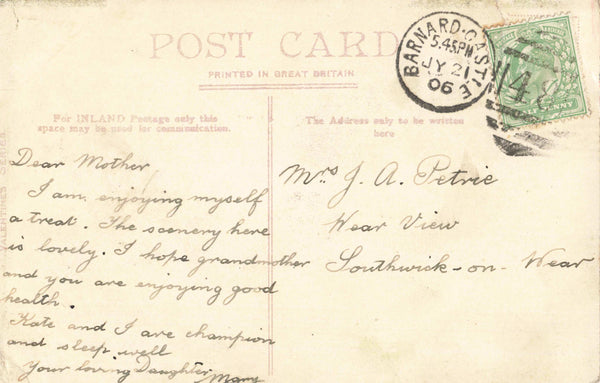 POST CARD
PRINTED IN GREAT BRITAIN
BARNARD-CASTLE
5.45PM
JY 21
06
48
For INLAND Postage only this
space may be used for communication.
The Address only to be written
here
Dear Mother
I am enjoying myself
a treat. The scenery here
is lovely. I hope grandmother
and you are enjoying good
health.
Kate and I are champion
and sleep well
Your loving Daughter
Mary
Mrs J. A. Petrie
Wear View
Southwick-on-Wear